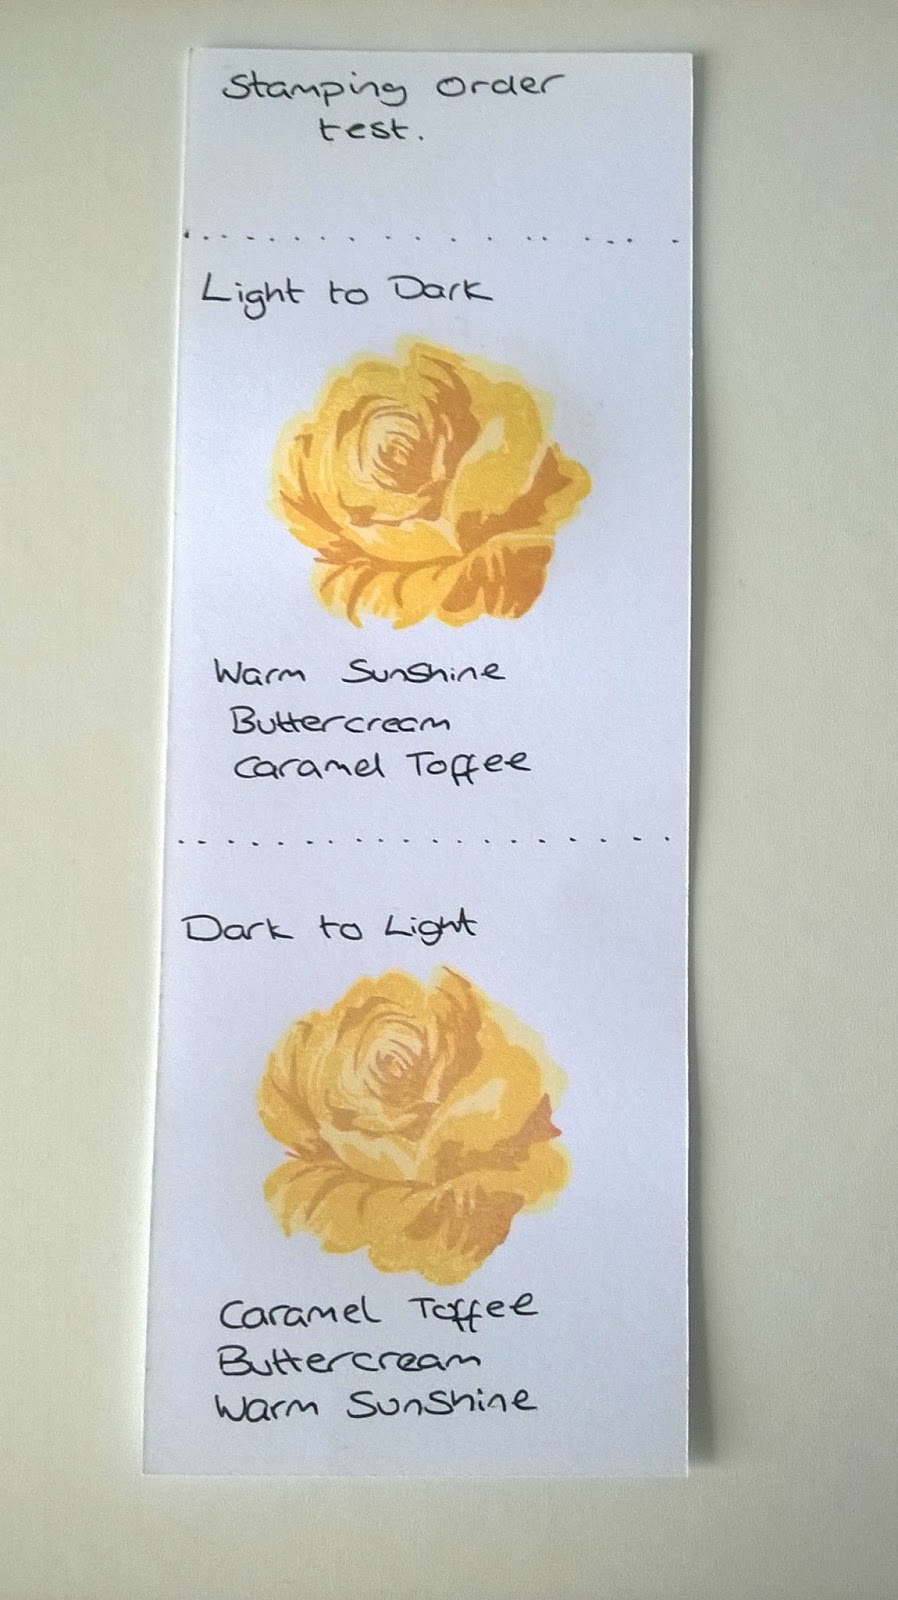 Stamping Order
test.
Light to Dark
Warm Sunshine
Buttercream
Caramel Toffee
Dark to Light
Caramel Toffee
Buttercream
Warm Sunshine